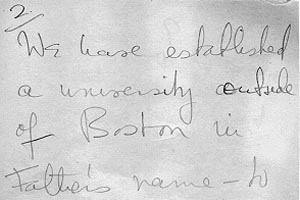 2/
We have established
a university outside
of Boston in
Father's name - to